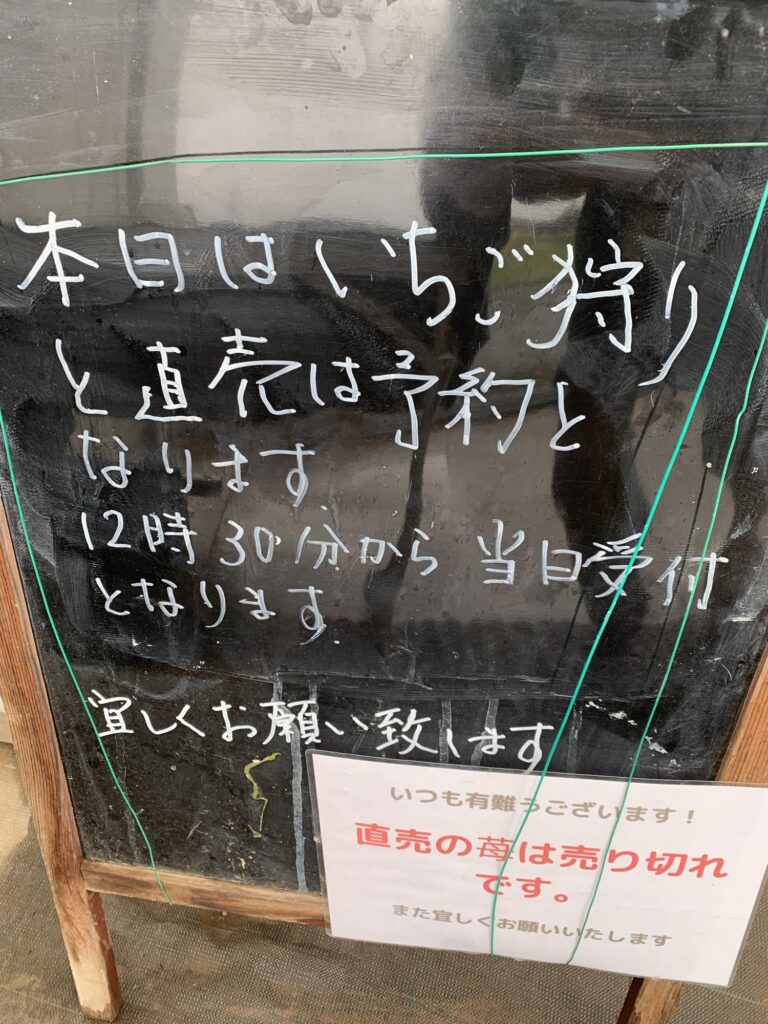 本日はいちご狩り
と直売は予約と
なります
12時30分から 当日受付
となります
宜しくお願い致します
いつも有難うございます！
直売の苺は売り切れ
です。
また宜しくお願いいたします